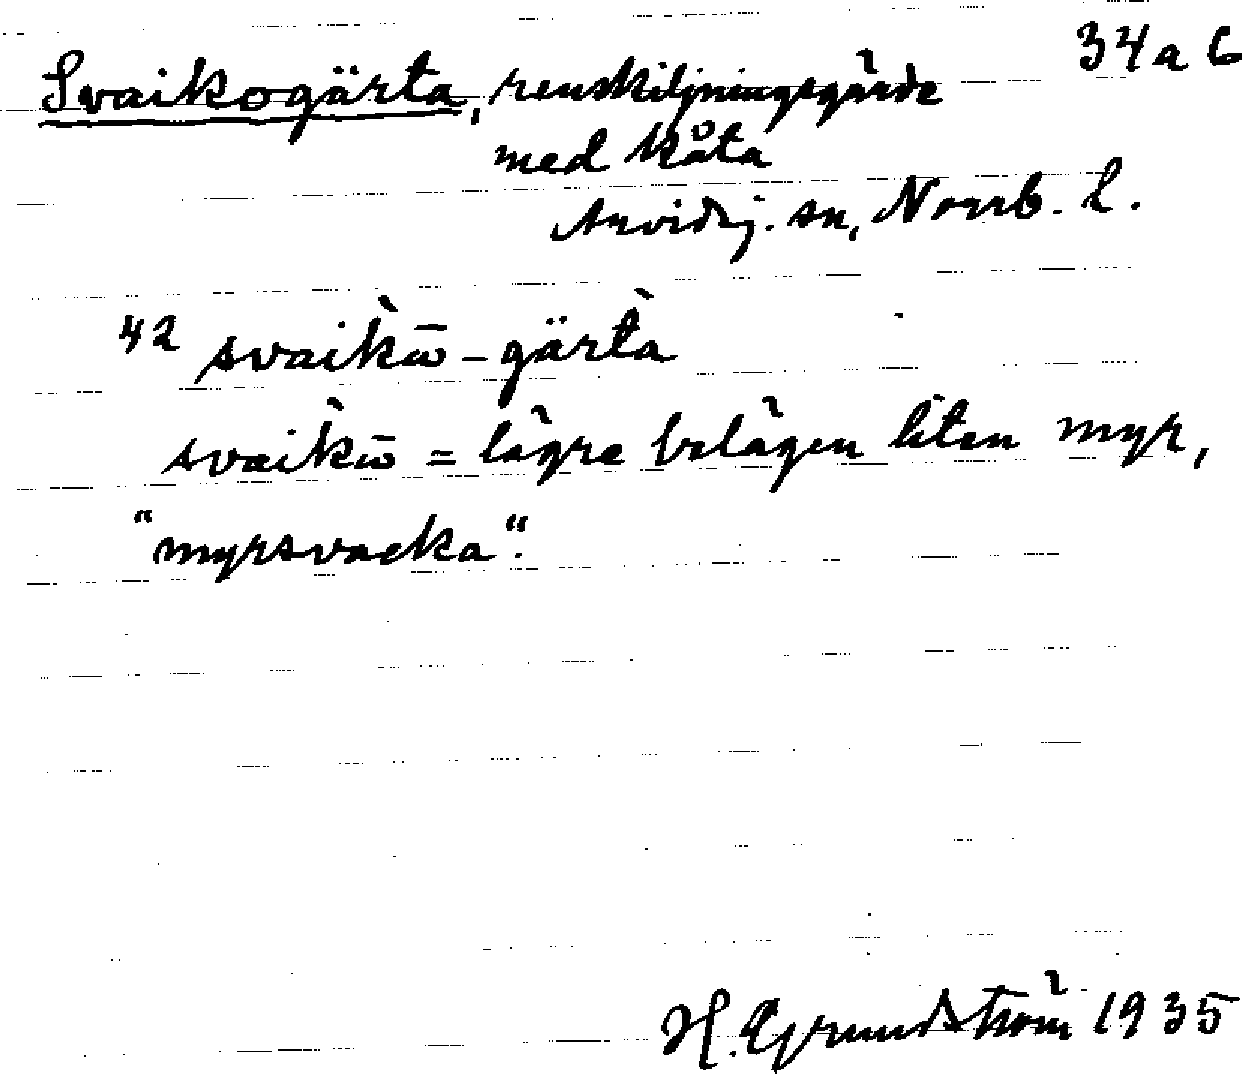 34 a 6
Svaikogärta, renskiljningsgärde
med kåta
Arvidsj. sn, Norrb. l.
42 svaikω̄-gärta
svaikω̄ = lägre belägen liten myr,
"myrsvacka".
H. Grundström 1935